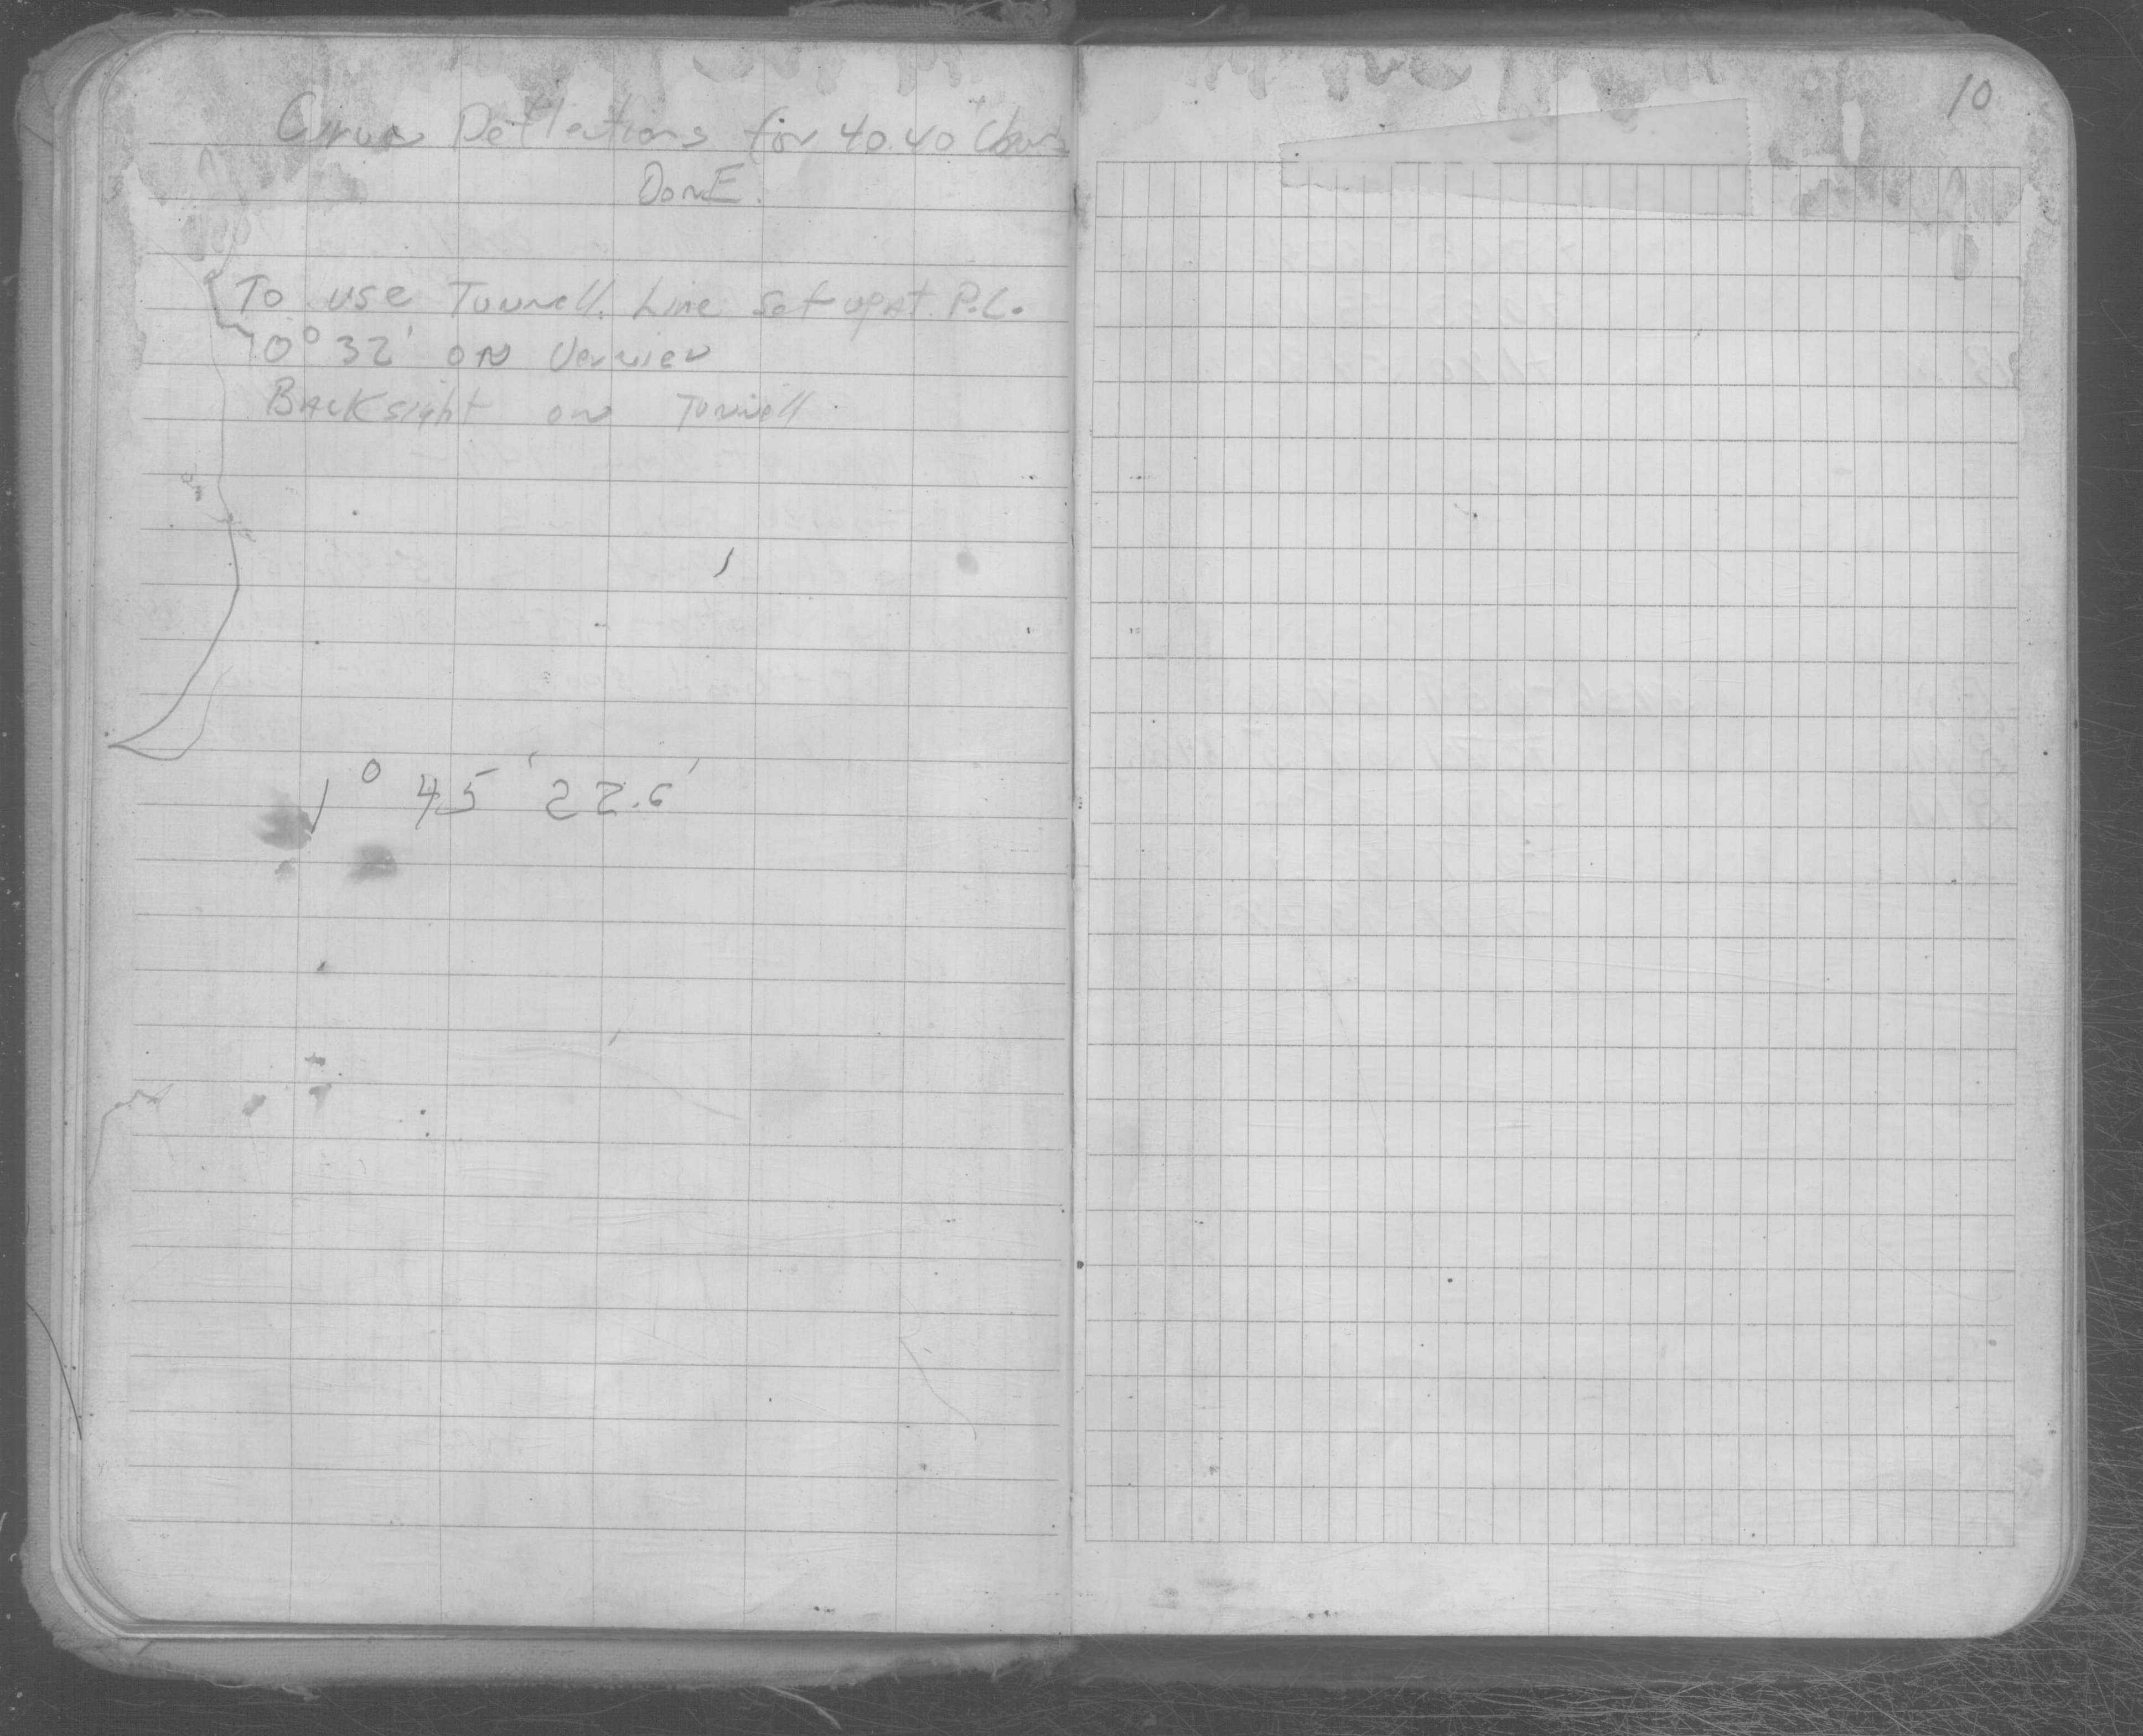 Curve Deflections for 40.40 Chord
DONE.
To use Tunnell. Line Set up At. P.C.
0° 32' ON Vernier
BACKsight on Tunnell.
1° 45' 22.6'
10